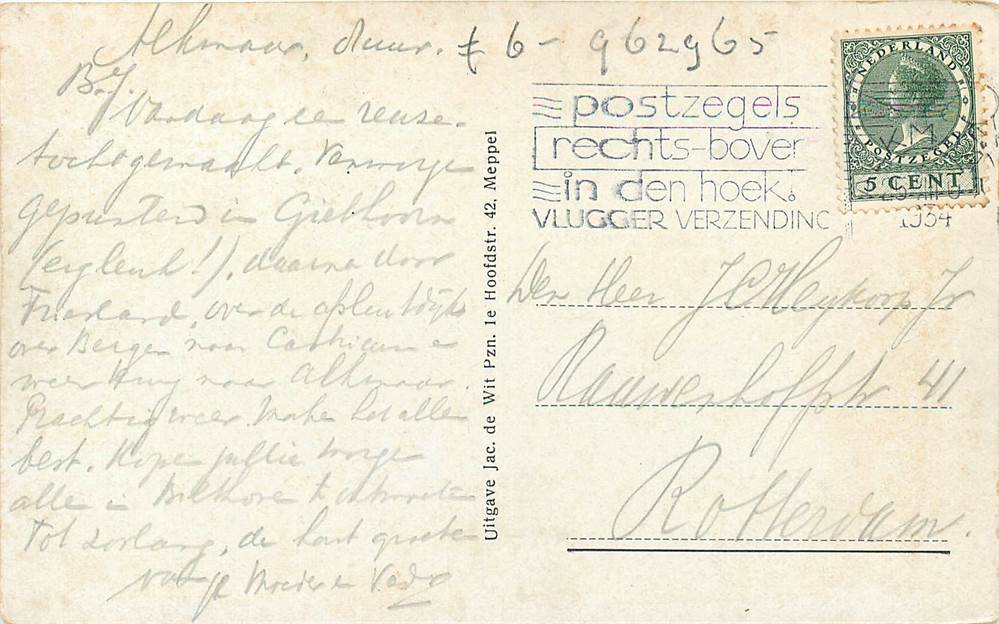 Alkmaar, duur. f 6 - 962965
B.J.
Vandaag een reuze-
tocht gemaakt. Vanmorge
gepunterd in Giethoorn
(eiglenk!), daarna door
Friesland, over de afsluitdijk
over Bergen naar Castricum e
weer terug naar Alkmaar.
Prachtig weer. Make het alle
best. Hope jullie morge
alle in Bilthove te ontmoeten
Tot zoolang, de hart groete
van je Moeder e Vader
Uitgave Jac. de Wit Pzn. 1e Hoofdstr. 42, Meppel
postzegels
rechts-boven
in den hoek!
VLUGGER VERZENDING
NEDERLAND
POSTZEGEL
5 CENT
VM
1934
Den Heer J C Jr
41
Rotterdam.